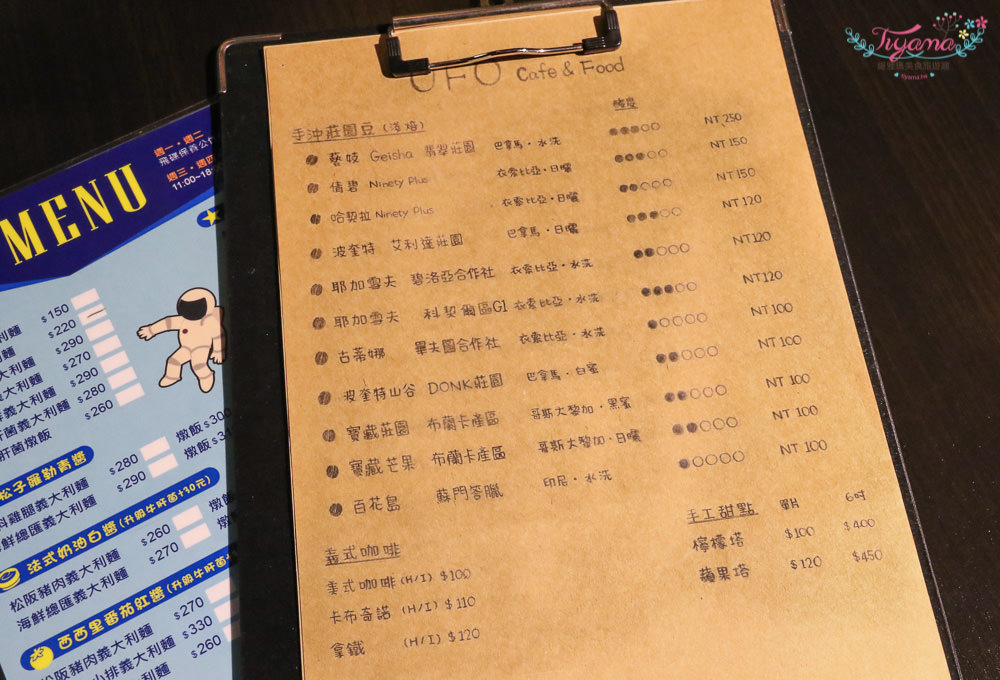 UFO Cafe & Food
酸度
手沖莊園豆(淺焙)
藝妓 Geisha 翡翠莊園 巴拿馬・水洗 ●●●○○ NT 250
倩碧 Ninety Plus 衣索比亞・日曬 ●●●○○ NT 150
哈契拉 Ninety Plus 衣索比亞・日曬 ●●○○○ NT 150
波奎特 艾利達莊園 巴拿馬・日曬 ●●●○○ NT 120
耶加雪夫 碧洛亞合作社 衣索比亞・水洗 ●●○○○ NT 120
耶加雪夫 科契爾區G1 衣索比亞・水洗 ●●●○○ NT 120
古蒂娜 畢夫圖合作社 衣索比亞・水洗 ●○○○○ NT 100
波奎特山谷 DONK莊園 巴拿馬・白蜜 ●●○○○ NT 100
寶藏莊園 布蘭卡產區 哥斯大黎加・黑蜜 ●●○○○ NT 100
寶藏芒果 布蘭卡產區 哥斯大黎加・日曬 ●●○○○ NT 100
百花島 蘇門答臘 印尼・水洗 ●○○○○ NT 100
義式咖啡
美式咖啡 (H/I) $100
卡布奇諾 (H/I) $110
拿鐵 (H/I) $120
手工甜點 單片 6吋
檸檬塔 $100 $400
蘋果塔 $120 $450
MENU
週一・週二
飛碟保養公休
週三・週四
11:00~18:
利麵 $150
$220
$290
義大利麵 $270
義大利麵 $290
肝菌義大利麵 $280
肝菌燉飯 $260
松子羅勒青醬
雞腿義大利麵 $280 燉飯 $300
海鮮總匯義大利麵 $290 燉飯 $31
法式奶油白醬(升級牛肝菌+30元)
松阪豬肉義大利麵 $260 燉飯
海鮮總匯義大利麵 $270
西西里番茄紅醬(升級牛肝菌+
松阪豬肉義大利麵 $270
小排義大利麵 $330
義大利麵 $260
Tiyama
tiyama.tw